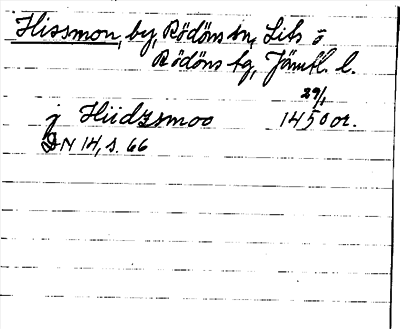 Hissmon, by, Rödöns sn, Lits o
Rödöns tg, Jämtl. l.
29/1
j Hiidzsmoo 1450 or.
DN 14, s. 66